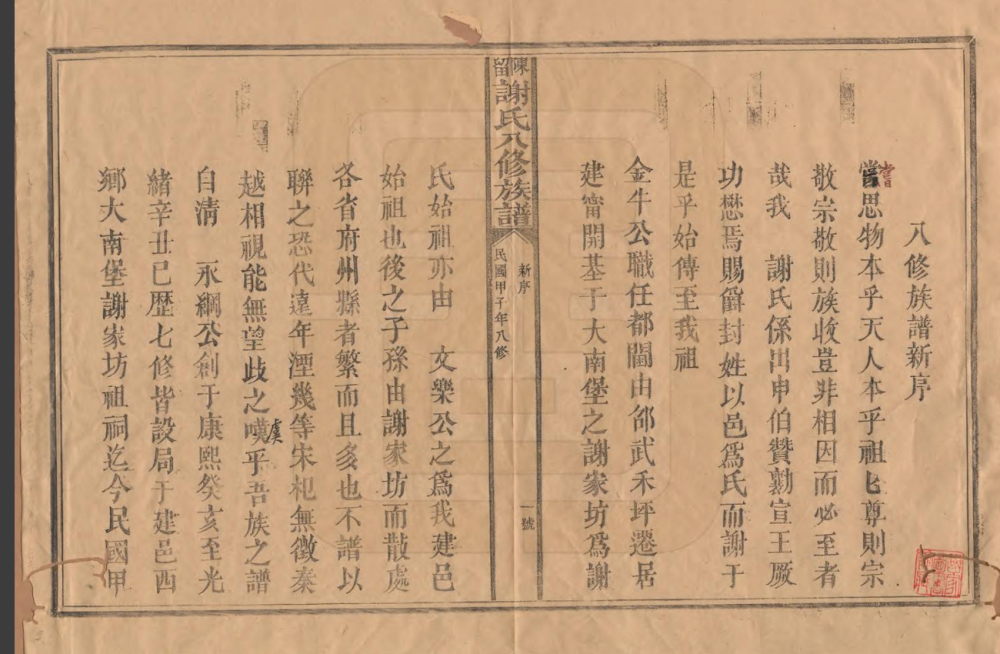 八修族譜新序
嘗思物本乎天人本乎祖祖尊則宗
敬宗敬則族收豈非相因而必至者
哉我　謝氏係出申伯贊勷宣王厥
功懋焉賜爵封姓以邑爲氏而謝于
是乎始傳至我祖
金牛公職任都閫由邵武禾坪遷居
建甯開基于大南堡之謝家坊爲謝
陳留謝氏八修族譜
新序
民國甲子年八修
一號
氏始祖亦由　文樂公之爲我建邑
始祖也後之子孫由謝家坊而散處
各省府州縣者繁而且多也不譜以
聯之恐代遠年湮幾等宋杞無徵秦
越相視能無望歧之嘆乎吾族之譜
虞
自清　永綱公創于康熙癸亥至光
緒辛丑已歷七修皆設局于建邑西
鄉大南堡謝家坊祖祠迄今民國甲